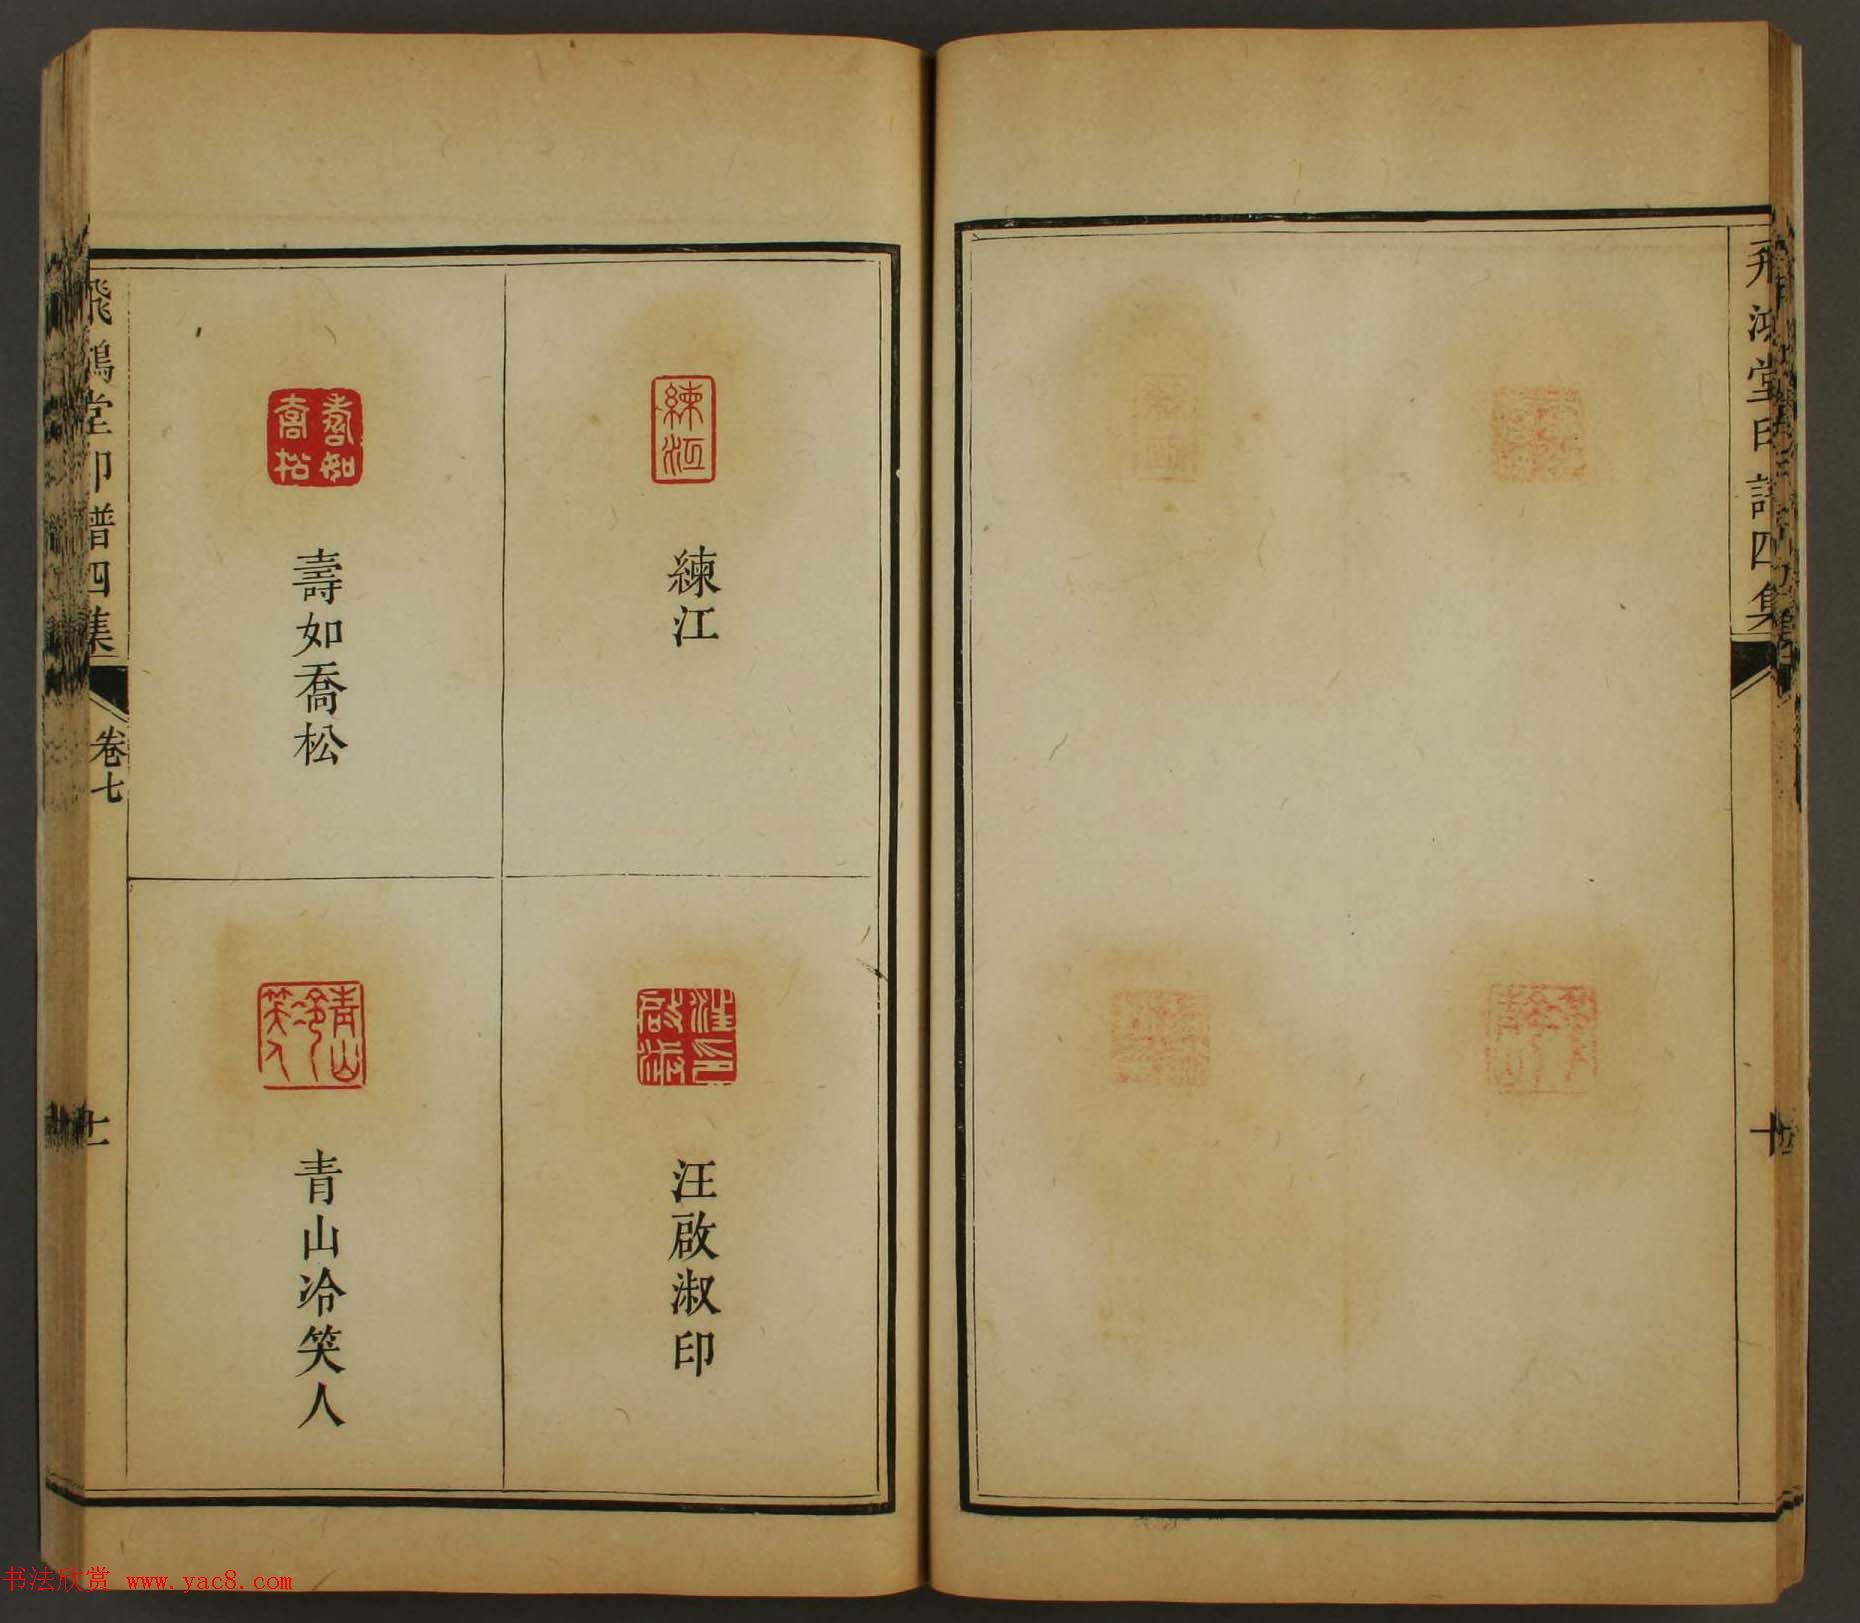 飛鴻堂印譜四集
卷七
十
練江
練江
汪啟淑印
汪啟淑印
壽如喬松
壽如喬松
青山冷笑人
青山冷笑人
飛鴻堂印譜四集
卷七
十一
书法欣赏 www.yac8.com